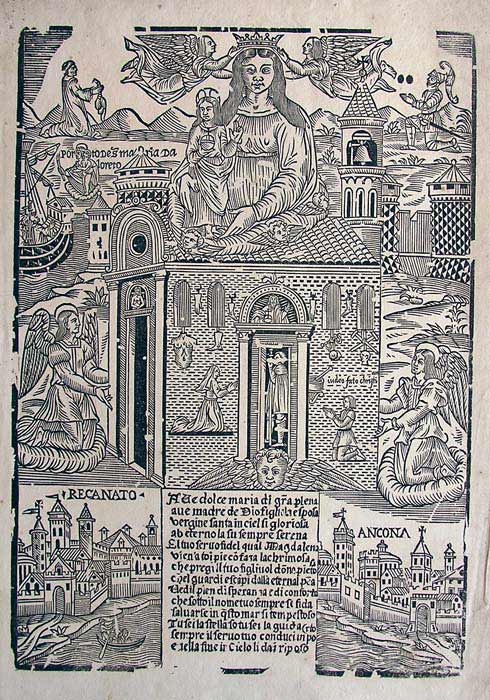 PORTO DE S MARIA DA
loreto
iudeo fato christi
RECANATO
ANCONA
AUe dolce maria di gra plena
aue madre de Dio figlia e sposa
vergine santa in ciel si gloriosa
ab eterno la su sempre serena
El tuo seruo fidel qual Magdalen
viē a toi pie cō faza lachrimosa
che preghi il suo figliuol
chel guardi e scāpi dalla eternal pēa
Uedil pien di speranza e di conforto
che sotto il nome tuo sempre si fida
saluarse in q̄sto mar si tempestoso
Tu sei la stella so tu sei la guida
sempre il seruo tuo conduci in po
e nella fine in Cielo li dai riposo